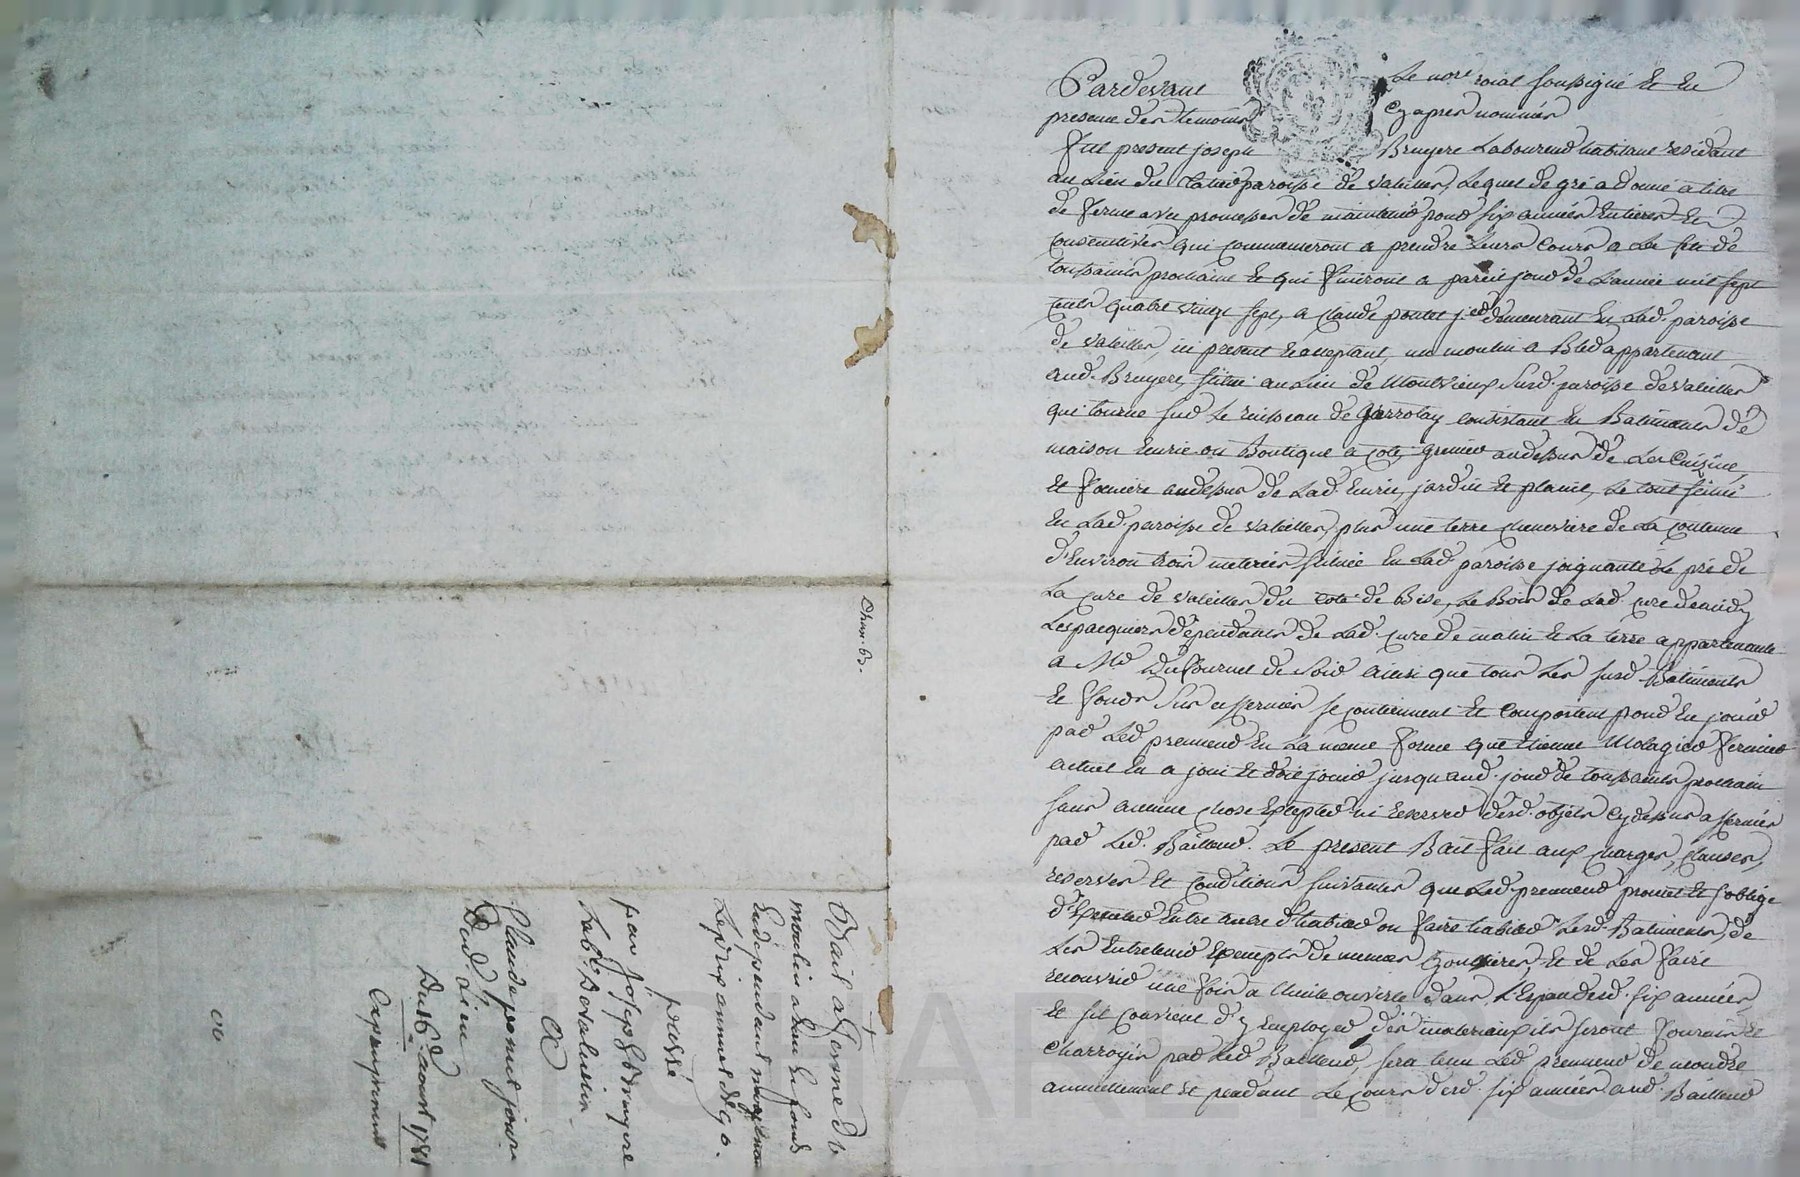 Pardevant Le nore roial soussigné et en
presence des temoins cy apres nommés
fut present joseph Bruyere Laboureur habitant residant
au Lieu du paroisse de valeilles, Lequel de gré a donné a titre
de ferme avec promesses de maintenir pour six années entieres et
consecutives qui commenceront a prendre leurs cours a La fete de
toussaints prochaine et qui finiront a pareil jour de L'année mil sept
cents quatre vingt sept, a claude poncet j.er demeurant en Lad. paroisse
de valeilles, ici present et acceptant, un moulin a Bled appartenant
aud. Bruyere, situé au Lieu de Montvieux susd. paroisse de valeilles
qui tourne sur Le ruisseau de consistant en Batiments de
maison ecurie ou Boutique a coté, grenier audessus de La Cuisine,
et feniere audessus de Lad. ecurie, jardin et placit, Le tout situé
en Lad. paroisse de valeilles, plus une terre cheneviere de La contenue
d'environ trois meterées située en Lad. paroisse joignante Le pré de
La cure de valeilles du coté de Bise, Le Bois de Lad. cure de
Les pacquiers dépendants de Lad. cure de matin et La terre appartenante
a Mr Dufournel de Soir ainsi que tous Les susd. Batiments
et fonds Sus affermés se contiennent et comportent pour en jouir
par Led. preneur en La meme forme que etienne Molagier fermier
actuel en a joui et doit jouir jusqu'aud. jour de toussaints prochain
sans aucune chose excepter ni reserver desd. objets cydessus affermés
par Led. Bailleur. Le present Bail fait aux charges, clauses,
reserves et conditions suivantes que Led. preneur promet et s'oblige
d'executer entre autre d'habiter ou faire habiter Lesd. Batiments, de
Les entretenir exempts de menues gouttieres, et de Les faire
recouvrir une fois a thuile ouverte dans L'espace desd. six années,
et s'il convient d'y employer des materiaux ils seront fournis et
charroyés par Led. Bailleur, sera tenu Led. preneur de moudre
annuellement et pendant Le cours desd. six années aud. Bailleur
Char. 63.
Bail a ferme du
moulin a bled et fonds
en dependant moyennant
Le prix annuel de 90.
passé
par joseph Bruyere
Labr. De valeilles
a
claude poncet jour.
Dud. Lieu
Du 16e. aout 1781